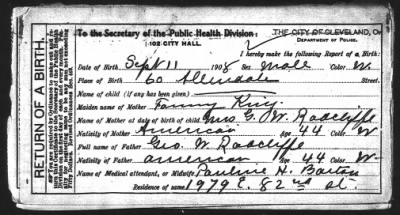 To the Secretary of the Public Health Division:
THE CITY OF CLEVELAND, O.
DEPARTMENT OF POLICE.
103 CITY HALL.
I hereby make the following Report of a Birth:
Date of Birth Sept 11 1908 Sex Male Color W
Place of Birth 60 Allendale Street.
Name of child (if any has been given)
Maiden name of Mother Fanny King
Name of Mother at date of birth of child Mrs G. W. Radcliffe
Nativity of Mother American Age 44 Color W
Full name of Father Geo. W. Radcliffe
Nativity of Father American Age 44 Color W
Name of Medical attendant, or Midwife Pauline H. Barton
Residence of same 1979 E. 82nd st.
RETURN OF A BIRTH.